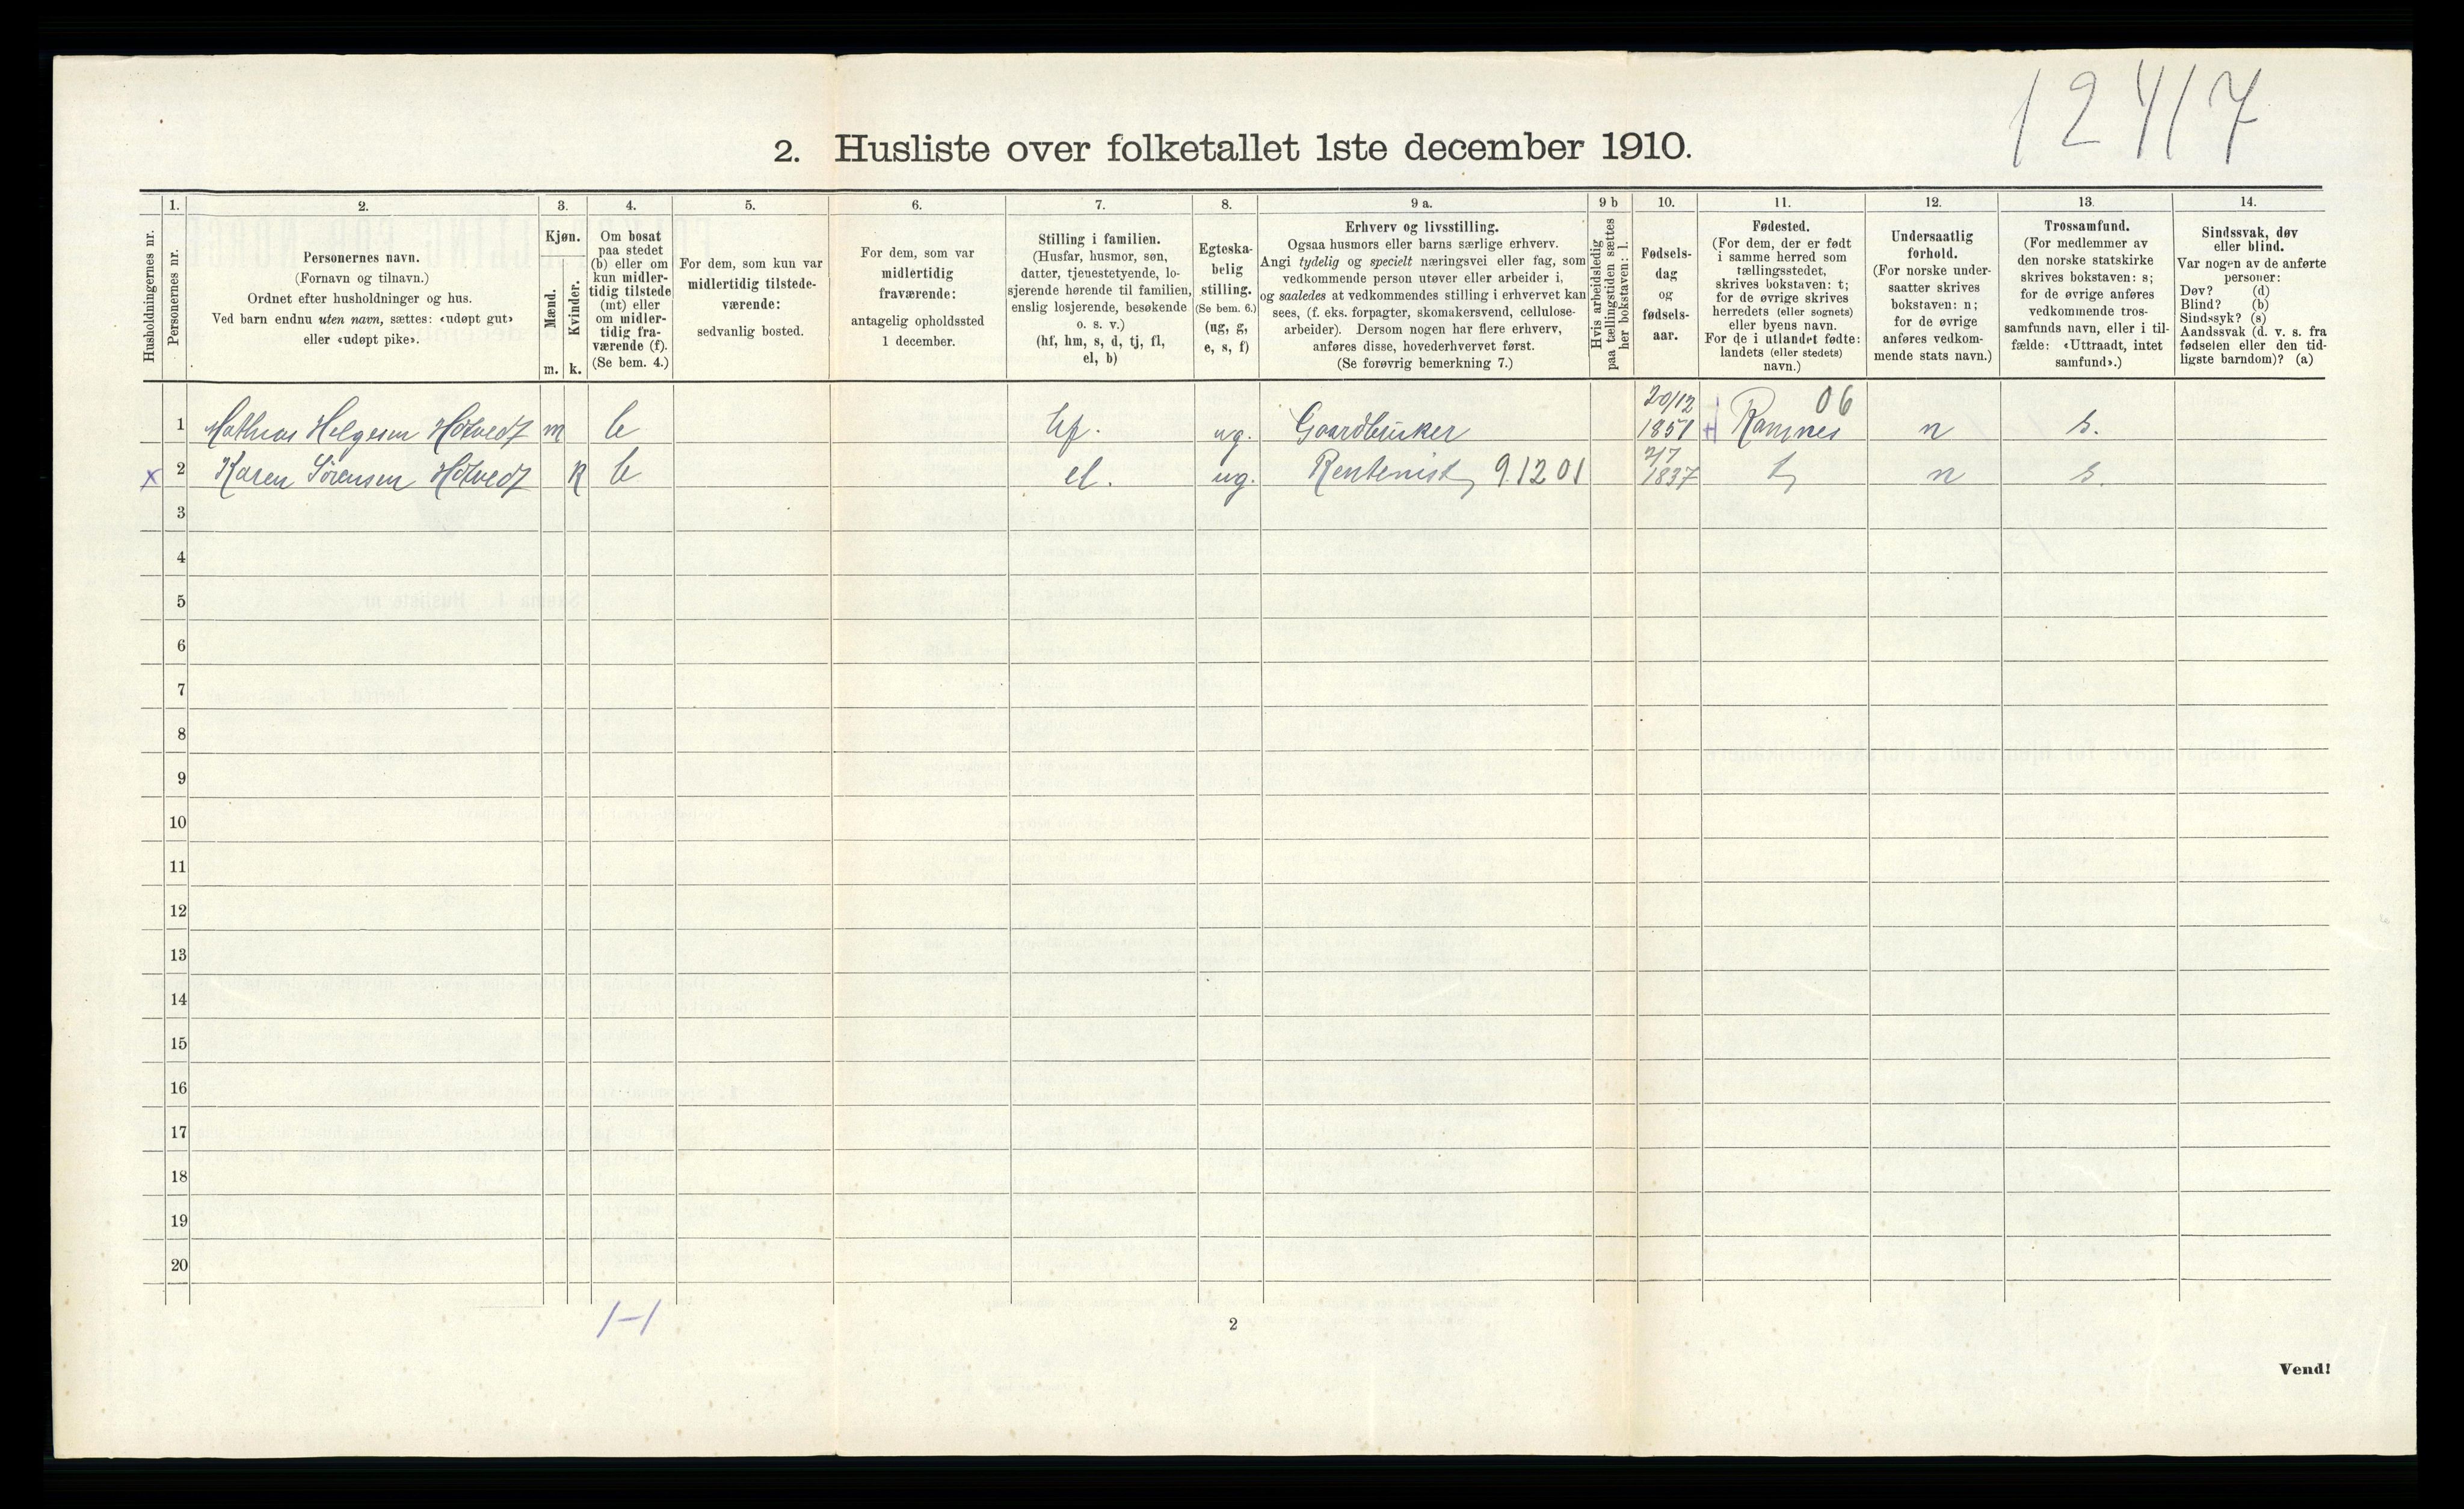 12417
2. Husliste over folketallet 1ste december 1910.
Husholdningernes nr.
1.
Personernes nr.
2.
Personernes navn.
(Fornavn og tilnavn.)
Ordnet efter husholdninger og hus.
Ved barn endnu uten navn, sættes: «udøpt gut»
eller «udøpt pike».
3.
Kjøn.
Mænd.
Kvinder.
m. k.
4.
Om bosat
paa stedet
(b) eller om
kun midler-
tidig tilstede
(mt) eller
om midler-
tidig fra-
værende (f).
(Se bem. 4.)
5.
For dem, som kun var
midlertidig tilstede-
værende:
sedvanlig bosted.
6.
For dem, som var
midlertidig
fraværende:
antagelig opholdssted
1 december.
7.
Stilling i familien.
(Husfar, husmor, søn,
datter, tjenestetyende, lo-
sjerende hørende til familien,
enslig losjerende, besøkende
o. s. v.)
(hf, hm, s, d, tj, fl,
el, b)
8.
Egteska-
belig
stilling.
(Se bem. 6.)
(ug, g,
e, s, f)
9 a.
Erhverv og livsstilling.
Ogsaa husmors eller barns særlige erhverv.
Angi tydelig og specielt næringsvei eller fag, som
vedkommende person utøver eller arbeider i,
og saaledes at vedkommendes stilling i erhvervet kan
sees, (f. eks. forpagter, skomakersvend, cellulose-
arbeider). Dersom nogen har flere erhverv,
anføres disse, hovederhvervet først.
(Se forøvrig bemerkning 7.)
9 b
Hvis arbeidsledig
paa tællingstiden sættes
her bokstaven: l.
10.
Fødsels-
dag
og
fødsels-
aar.
11.
Fødested.
(For dem, der er født
i samme herred som
tællingsstedet,
skrives bokstaven: t;
for de øvrige skrives
herredets (eller sognets)
eller byens navn.
For de i utlandet fødte:
landets (eller stedets)
navn.)
12.
Undersaatlig
forhold.
(For norske under-
saatter skrives
bokstaven: n;
for de øvrige
anføres vedkom-
mende stats navn.)
13.
Trossamfund.
(For medlemmer av
den norske statskirke
skrives bokstaven: s;
for de øvrige anføres
vedkommende tros-
samfunds navn, eller i til-
fælde: «Uttraadt, intet
samfund».)
14.
Sindssvak, døv
eller blind.
Var nogen av de anførte
personer:
Døv? (d)
Blind? (b)
Sindssyk? (s)
Aandssvak (d. v. s. fra
fødselen eller den tid-
ligste barndom)? (a)
1 Mathias Helgesen Hotvedt m b hf. ug. Gaardbruker 20/12 1851 Ramnes 06 n s.
x 2 Karen Sørensen Hotvedt k b el. ug. Rentenist 9.12 01 2/7 1837 t n s.
3
4
5
6
7
8
9
10
11
12
13
14
15
16
17
18
19
20
1-1
2
Vend!